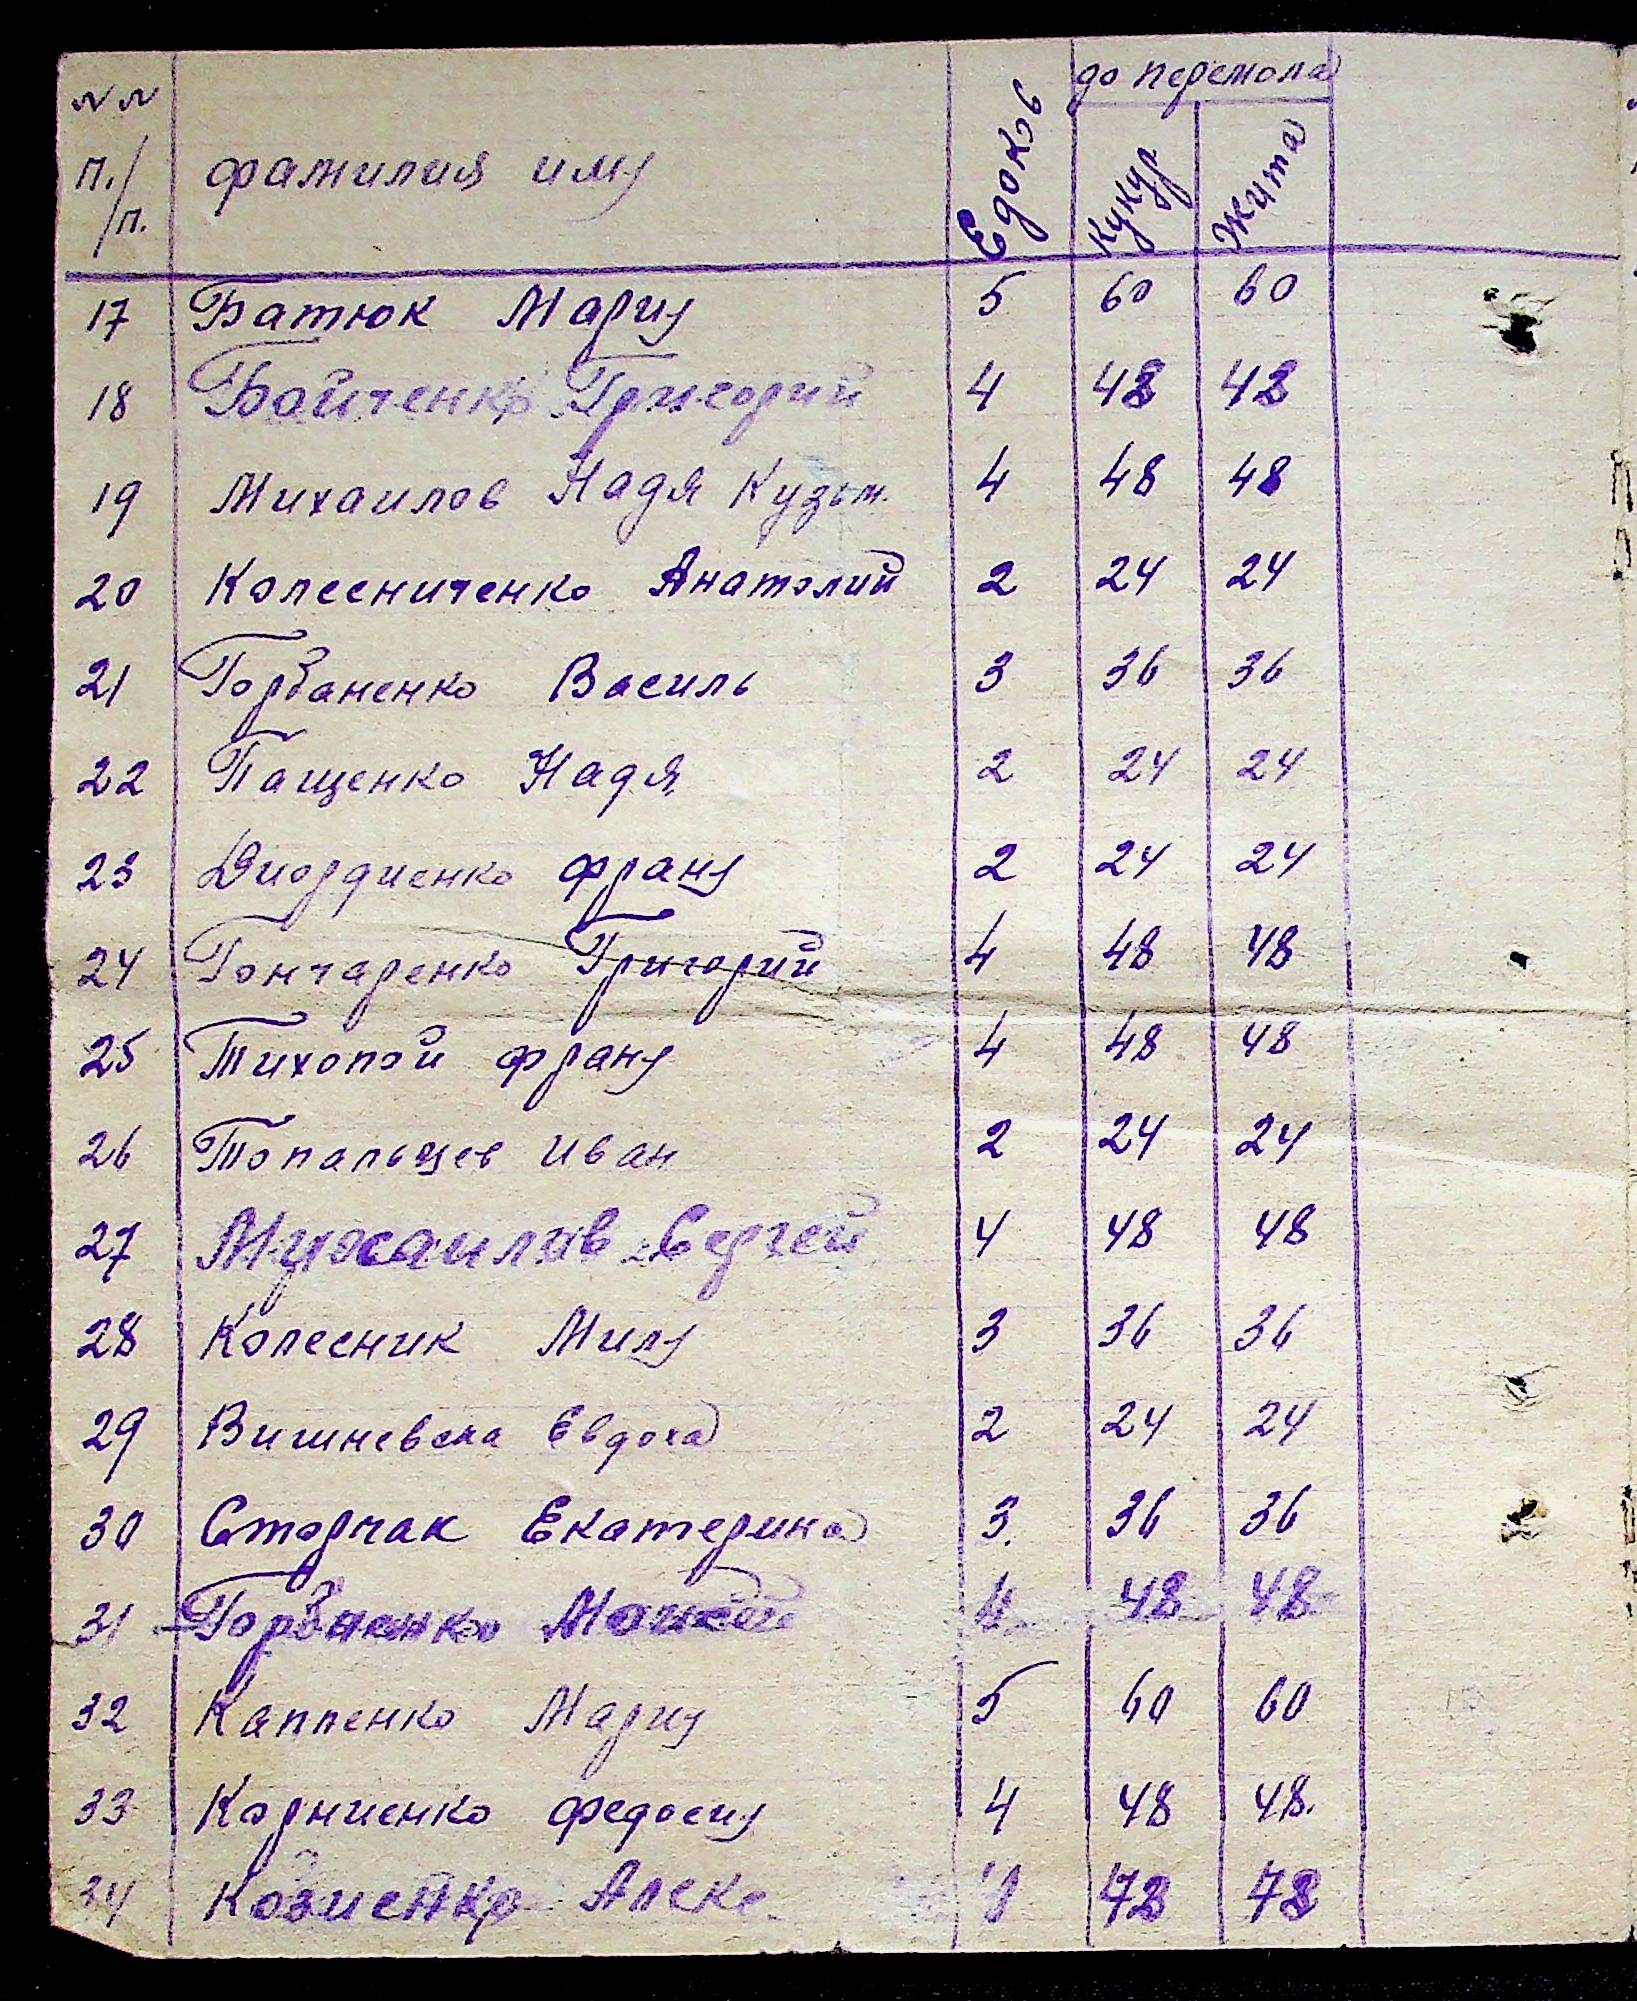 до перемола
№ №
п./п. фамилия имя Едоков Кукур Жита
17 Батюк Мария 5 60 60
18 Бойченко Григорий 4 48 48
19 Михаилов Надя Кузьм. 4 48 48
20 Колесниченко Анатолий 2 24 24
21 Горбаненко Василь 3 36 36
22 Пащенко Надя 2 24 24
23 Диордиенко франя 2 24 24
24 Гончаренко Григорий 4 48 48
25 Тихопой франя 4 48 48
26 Топальцев Иван 2 24 24
27 Михаилов Сергей 4 48 48
28 Колесник Миля 3 36 36
29 Вишневска Евдоха 2 24 24
30 Сторчак Екатерина 3. 36 36
31 Горбаненко 4 48 48
32 Каппенко Мария 5 60 60
33 Корниенко федосия 4 48 48.
34 Алекс. 48 48